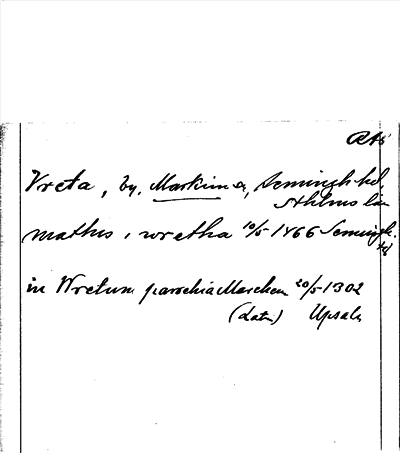 RAÖ
Vreta, by. Markim s, Seminghds hd,
Sthlms län
mathus i wretha 10/5 1466 Semingh.
hd
in Wretum parochia Marchem 20/5 1302
(dat.) Upsala